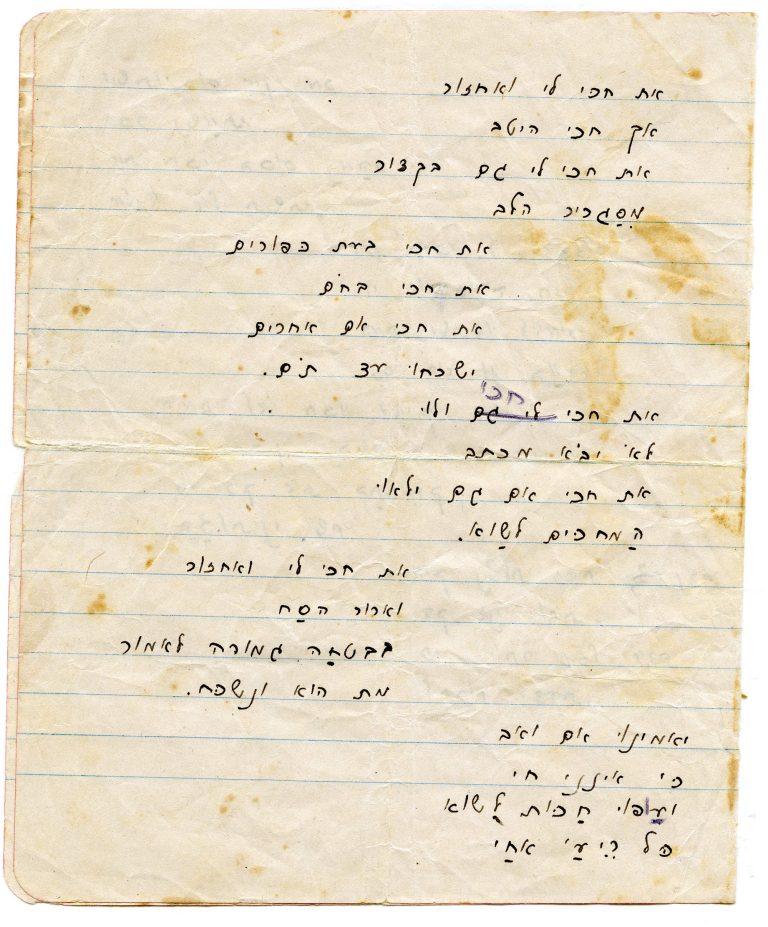 את חכי לי ואחזור
אך חכי היטב
את חכי לי גם בקצור
מִסַגריר הלב
את חכי בעת כפורים
את חכי בחֹם
את חכי אם אחרים
ישכחו עד תֹם.
חכי
את חכי לי גם ולוּ
לא יבֹא מכתב
את חכי אם גם ילאוּ
הַמחכים לשָוא.
את חכי לי ואחזור
וארור הסַח
בבטחָה גמורה לאמור
מת הוא ונשכח.
יאמינוּ אם ואב
כי אינני חי
חַכות לַשוא
כל רֵיעַי אחַי